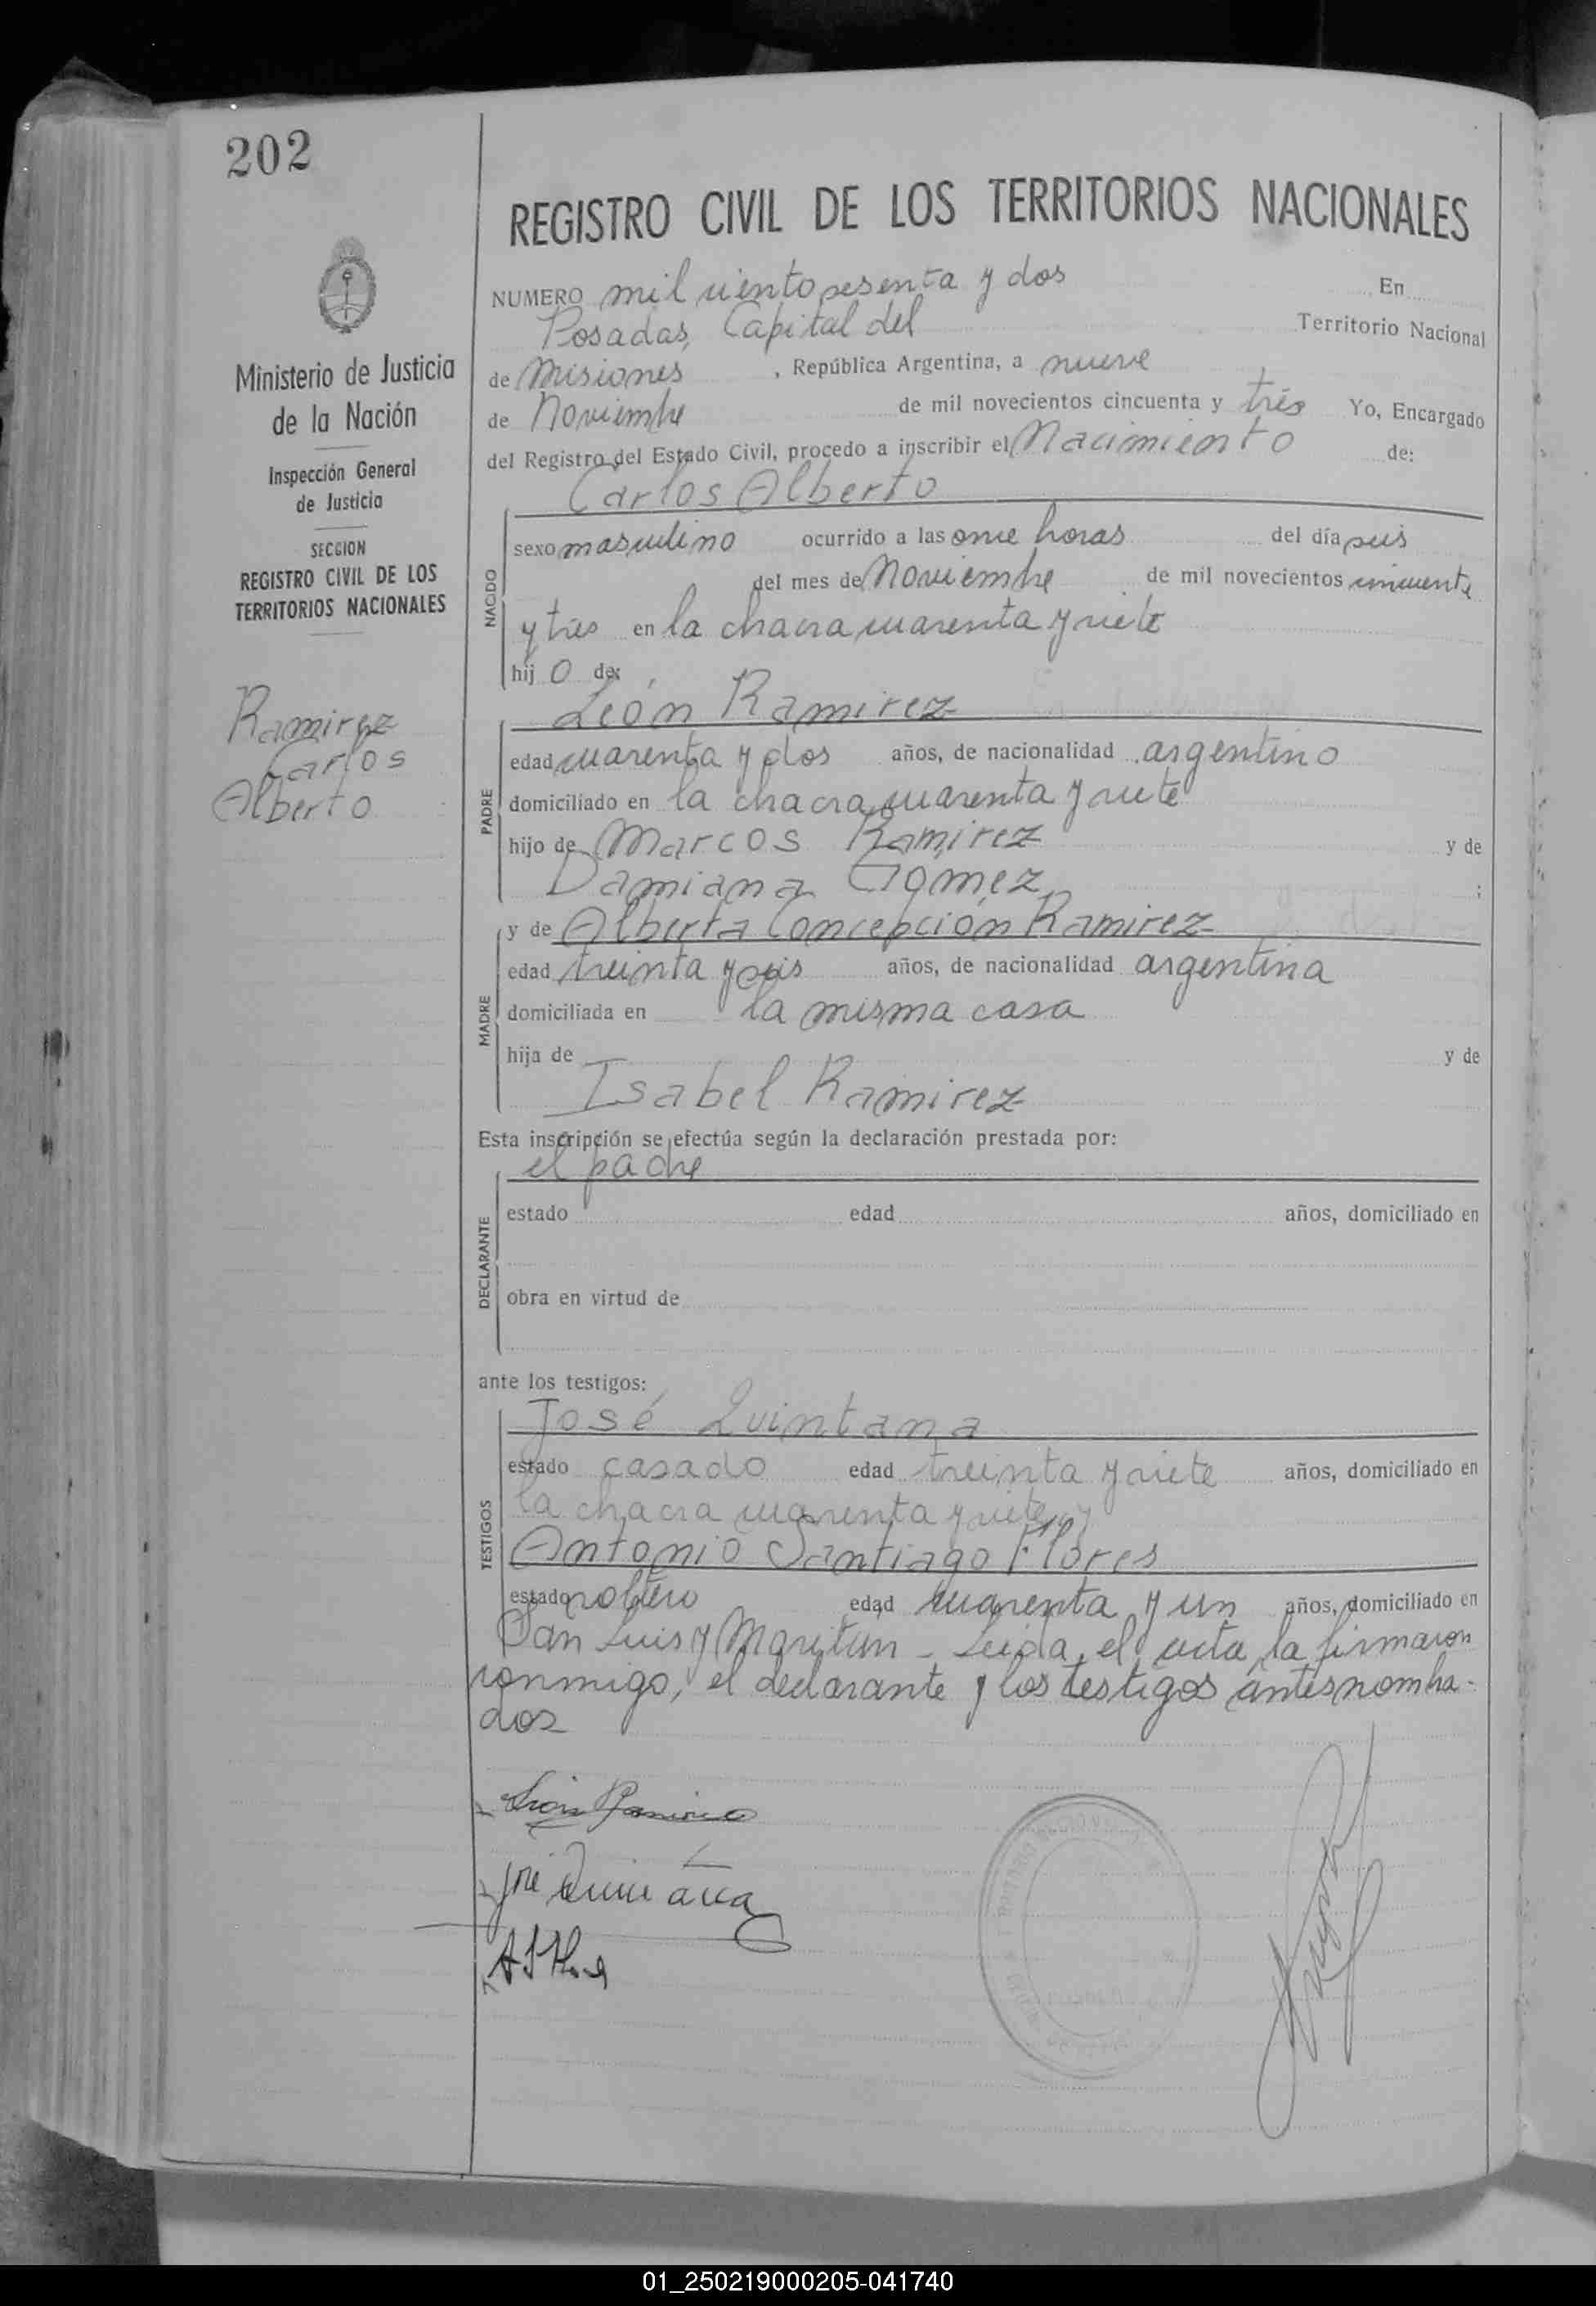 202
REGISTRO CIVIL DE LOS TERRITORIOS NACIONALES
Ministerio de Justicia
de la Nación
Inspección General
de Justicia
SECCION
REGISTRO CIVIL DE LOS
TERRITORIOS NACIONALES
Ramirez
Carlos
Alberto
NUMERO mil ciento sesenta y dos En
Posadas, Capital del Territorio Nacional
de Misiones, República Argentina, a nueve
de Noviembre de mil novecientos cincuenta y trés Yo, Encargado
del Registro del Estado Civil, procedo a inscribir el Nacimiento de:
Carlos Alberto
NACIDO
sexo masculino ocurrido a las once horas del día seis
del mes de Noviembre de mil novecientos cincuenta
y tres en la chacra cuarenta y siete
hijo de:
León Ramirez
PADRE
edad cuarenta y dos años, de nacionalidad argentino
domiciliado en la chacra cuarenta y siete
hijo de Marcos Ramirez y de
Damiana Gómez ;
y de Alberta Concepción Ramirez
MADRE
edad treinta y seis años, de nacionalidad argentina
domiciliada en la misma casa
hija de y de
Isabel Ramirez
Esta inscripción se efectúa según la declaración prestada por:
el padre
DECLARANTE
estado edad años, domiciliado en
obra en virtud de
ante los testigos:
José Quintana
TESTIGOS
estado casado edad treinta y siete años, domiciliado en
la chacra cuarenta y siete, y
Antonio Santiago Flores
estado soltero edad cuarenta y un años, domiciliado en
San Luis y - Leida el acta, la firmaron
conmigo, el declarante y los testigos antes nombra-
dos
León Ramirez
José Quintana
A S Flores
01_250219000205-041740